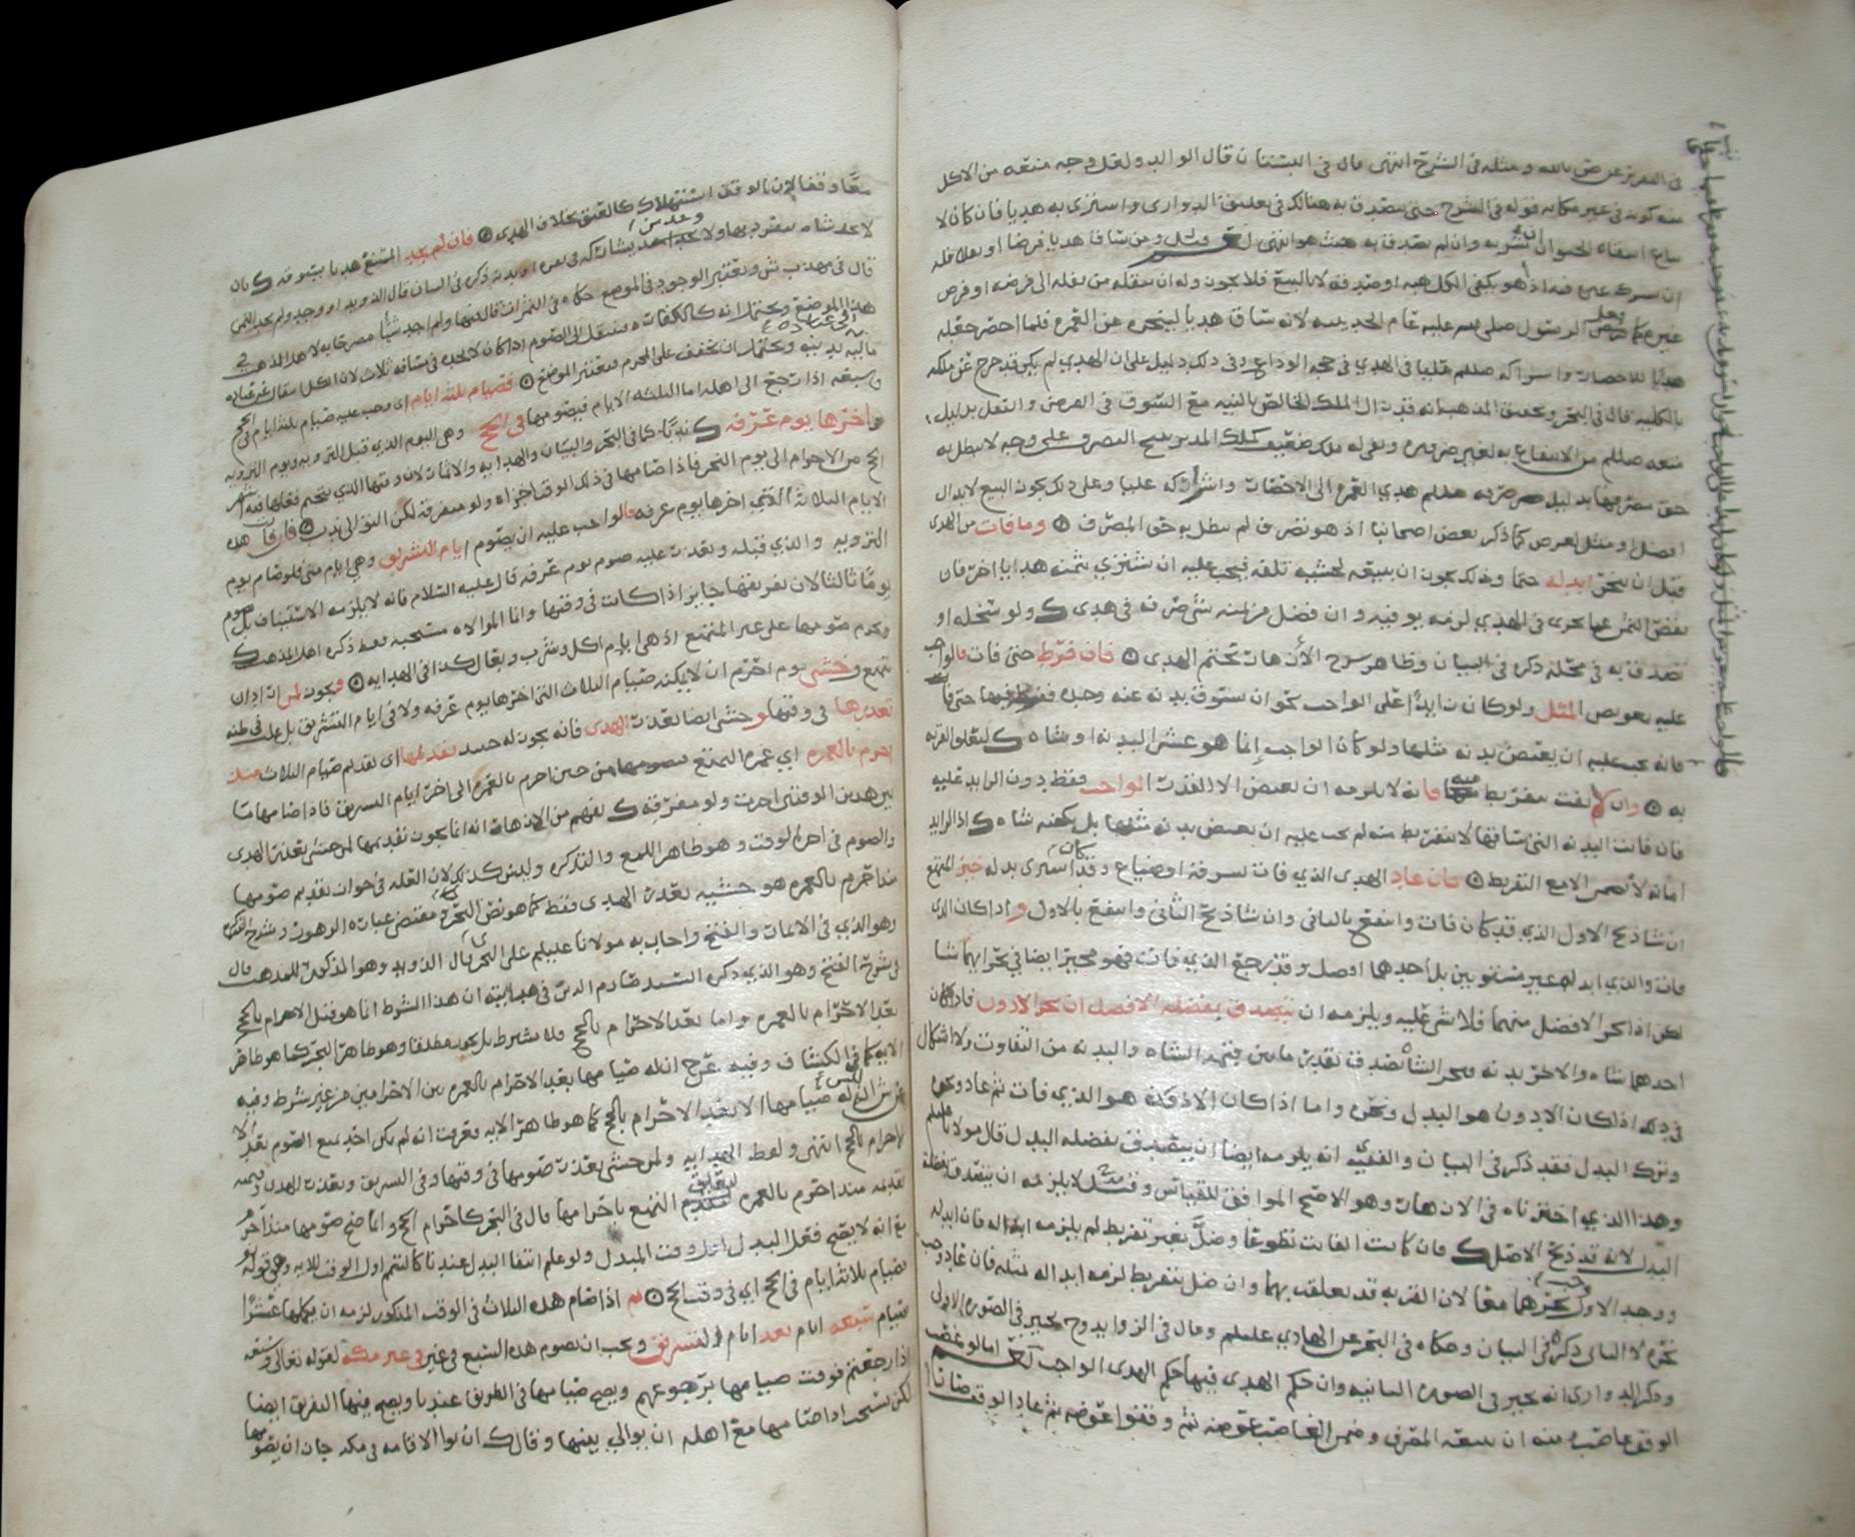 في التقرير عن ض بالله ومثله في الشرح انتهى قال في البستان قال الوالد ولعل وجه منعه من الاكل
منه كونه في غير مكانه قوله في الشرح حتى يتصدق به هنالك في تعليق الدواري واشترى به هديا فان كان لا
يباع وان لم يتصدق به حيث هو انتهى ومن ساق هديا فرضا او نفلا فله
هو يكفي الكل هبه او صدقه لا بالبيع فلا يجوز وله ان ينقله من نفله الى فرضه او فرض
غيره كما الرسول صلى الله عليه عام الحديبيه لانه ساق هديا لينحره عن العمره فلما احصر جعله
هديا للاحصار واشراكه صللم عليا في الهدي في حجه الوداع وفي ذلك دليل على ان الهدي لم يكن قد خرج عن ملكه
بالكليه قال في البحر وتحقيق المذهب انه قد زال الملك الخالص بالنيه مع السوق في الفرض والنفل بدليل
منعه صللم من الانتفاع به لغير ضروره وبقي له ملك ضعيف كملك المدبر يبيح التصرف على وجه لا يبطل به
حق مصرفها بدليل صرفه صللم هدي العمره الى الاحصار واشراكه عليا وعلى ذلك يجوز البيع لابدال
افضل او مثل لغرض كما ذكر بعض اصحابنا اذ هو تصرف لم يبطل به حق المصرف وما فات من الهدي
قبل ان ينحر ابدله حتما وكذلك يجوز ان يبيعه لخشيه تلفه فيجب عليه ان يشتري بثمنه هديا اخر فان
نقص الثمن عما يجزي في الهدي لزمه يوفيه وان فضل من ثمنه شي صرفه في هدي ولو سخله او
تصدق به في محله ذكره في البيان وظاهر شرح الأزهار تحتم الهدي فان فرط حتى فات فالواجب
عليه تعويض المثل ولو كان زايدا على الواجب نحو ان يسوق بدنه عنه وحده حتى فات
فانه يجب عليه ان يعتض بدنه مثلها ولو كان الواجب إنما هو عشر البدنه او شاه لتعلق القربه
به وان لا يفت بتفريط منه فانه لا يلزمه ان يعتض الا القدر الواجب فقط دون الزايد عليه
فان فاتت البدنه التي ساقها لا بتفريط منه لم يجب عليه ان يعتض بدنه مثلها بل يكفيه شاه اذ الزايد
امانه لا تضمن الا مع التفريط فان عاد الهدي الذي فات بسرقه او ضياع وقد كان اشترى بدله خير المتمتع
ان شا ذبح الاول الذي قد كان فات وانتفع بالثاني وان شا ذبح الثاني وانتفع بالاول واذا كان الذي
فات والذي ابدله غير مستويين بل احدهما افضل وقد رجع الذي فات فهو مخير ايضا في نحر ايهما شا
لكن اذا نحر الافضل منهما فلا شي عليه ويلزمه ان يتصدق بفضله الافضل ان نحر الادون فاذا كان
احدهما شاه والاخر بدنه ونحر الشاة تصدق بقدر ما بين قيمه الشاه والبدنه من التفاوت ولا اشكال
في ذلك اذا كان الادون هو البدل ونحره واما اذا كان الادون هو الذي فات ثم عاد ونحره
وترك البدل فقد ذكر في البيان والفقيه انه يلزمه ايضا ان يتصدق بفضله البدل قال مولانا عليلم
وهذا الذي اخترناه في الازهار وهو الاصح الموافق للقياس وقيل لا يلزمه ان يتصدق بفضله
البدل لانه قد ذبح الاصل فان كانت الفايت تطوعا وضل بغير تفريط لم يلزمه ابداله فان ابدله
ووجد الاول نحرهما معا لان القربه قد تعلقت بهما وان ضل بتفريط لزمه ابداله بمثله فان عاد
نحره لا الثاني ذكره في البيان وحكاه في البحر عن الهادي عليلم وقال في الزوايد وح يخير في الصوره الاولى
وذكر الدواري انه يخير في الصوره الثانيه وان حكم الهدي فيها حكم الهدي الواجب اما لو غصب
الوقف غاصب منه ان يبيعه المصرف وضمن الغاصب عوضه ثم وقفوا عوضه ثم عاد الوقف صارا
معا وقفا لأن بالوقف استهلاك كالعتق بخلاف الهدي فان لم يجد المتمتع هديا يسوقه بان
لا يجد شاه ينفرد بها ولا يجد من يشاركه في بقره او بدنه ذكره في البيان قال الدويد او وجد ولم يجد الثمن
قال في مهذب ش ويعتبر الوجود في الموضع حكاه في الثمرات قال فيها ولم اجد شيأ مصرحا به لاهل المذهب في
هذا الموضع ويحتمل انه كالكفارات فينتقل الى الصوم اذا كان لا يجده في مسافه ثلاث لان الكل
ماليه بدنيه ويحتمل ان يخفف على المحرم فيعتبر الموضع فصيام ثلثه ايام اي وجب عليه صيام ثلثه ايام في الحج
وسبعه اذا رجع الى اهله اما الثلثه الايام فيصومها في الحج وهي اليوم الذي قبل الترويه ويوم الترويه
واخرها يوم عرفه ندبا كما في البحر والبيان والهدايه والاثمار لان وقتها الذي يتحتم فعلها فيه
الحج من الاحرام الى يوم النحر فاذا صامها في ذلك الوقت اجزاه ولو متفرقه لكن التوالي ندب فان فات هذه
الايام الثلاثة التي اخرها يوم عرفه فالواجب عليه ان يصوم ايام التشريق وهي ايام منى فلو صام يوم
الترويه والذي قبله وتعذر عليه صوم يوم عرفه قال عليه السلام فانه لا يلزمه الاستيناف بل يصوم
يوما ثالثا لان تفريقها جايز اذا كانت في وقتها وانما الموالاه مستحبه فقط ذكره اهل المذهب
ويحرم صومها على غير المتمتع اذ هي ايام اكل وشرب وبعال كذا في الهدايه ويجوز لمن اذا
تمتع وخشي يوم احرم ان لا يمكنه صيام الثلاث التي اخرها يوم عرفه ولا في ايام التشريق بل غلب في ظنه
تعذرها في وقتها وخشي ايضا تعذر الهدي فانه يجوز له حينئذ تقديمها اي تقديم صيام الثلاث منذ
احرم بالعمره اي عمره التمتع فيصومها من حين احرم بالعمره الى اخر ايام التشريق فاذا صامها ما
بين هذين الوقتين اجزت ولو مفرقه يفهم من الازهار انه انما يجوز تقديمها لمن خشي تعذر الهدي
والصوم في اخر الوقت وهو ظاهر اللمع والتذكره وليس كذلك لان العله في جواز تقديم صومها
منذ احرم بالعمره هو خشيه تعذر الهدي فقط كما هو نص البحر ومقتضى عباره الزهور وشرح
وهو الذي في الاثمار والفتح واجاب به مولانا عليلم على النجري قال الدويد وهو المذكور للمذهب قال
في شرح الفتح وهو الذي ذكره السيد صارم الدين في هدايته ان هذا الشرط انما هو قبل الاحرام بالحج
بعد الاحرام بالعمره واما بعد الاحرام بالحج فلا يشترط بل يجوز مطلقا وهو ظاهر البحر كما هو ظاهر
الايه كما في الكشاف وفيه عن ح ان له صيامها بعد الاحرام بالعمره بين الاحرامين من غير شرط وفيه
عن ش ليس له صيامها الا بعد الاحرام بالحج كما هو ظاهر الايه
الاحرام بالحج انتهى ولفظ الهدايه ولمن خشي تعذر صومها في وقتها وفي التشريق وتعذر الهدي
تقديمه منذ احرم بالعمره التمتع باحرامها قال في البحر كاحرام الحج وانما صح صومها منذ احرم
مع انه لا يصح فعل البدل وقت المبدل ولو علم انتفا البدل عندنا كالتيمم اول الوقت للايه وهي قوله تع
فصيام ثلاثة ايام في الحج اي في وقت الحج ثم اذا صام هذه الثلاث في الوقت المذكور لزمه ان يكملها عشرا
بصيام سبعه ايام بعد ايام التشريق ويجب ان يصوم هذه السبع في غير مكه لقوله تعالى وسبعه
اذا رجعتم فوقت صيامها برجوعهم ويصح صيامها في الطريق عندنا ويصح فيها التفريق ايضا
لكن يستحب اذا صامها مع اهله ان يوالي بينها وقال ك ان نوا الاقامه في مكه جاز ان يصومها